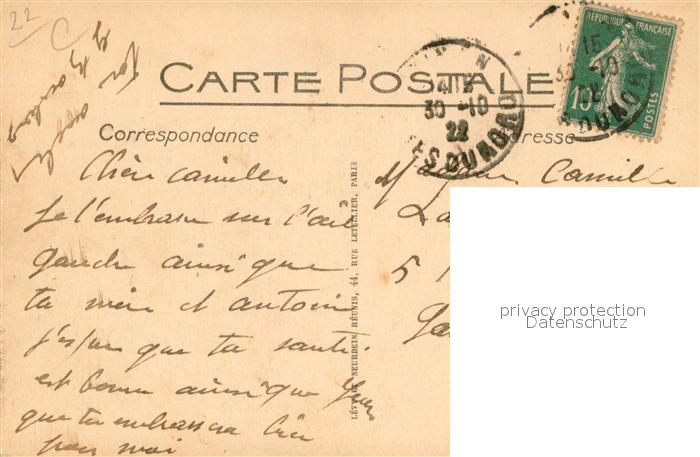 22
C
RÉPUBLIQUE FRANÇAISE
10
POSTES
CARTE POSTALE
30 -10
22
30 -10
Correspondance
Adresse
Chère Camille
Je t'embrasse sur l'œil
gauche ainsi que
ta mère et antoine
j'espère que ta santé
est bonne ainsi que
que tu embrassera bien
pour moi
LÉVY ET NEURDEIN RÉUNIS, 44, RUE LETELLIER, PARIS
Camille
5
privacy protection
Datenschutz